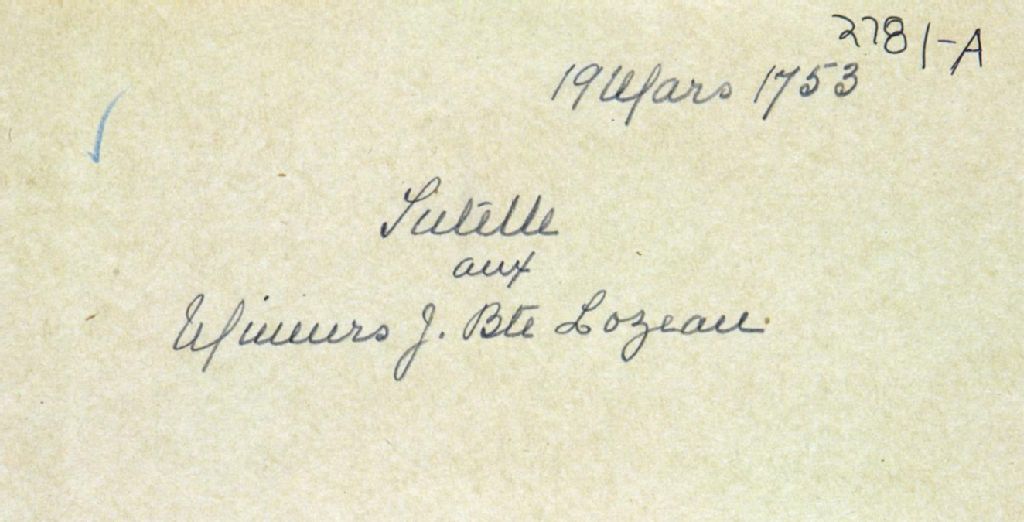 2781-A
19 Mars 1753
Tutelle
aux
Mineurs J. Bte Lozeau